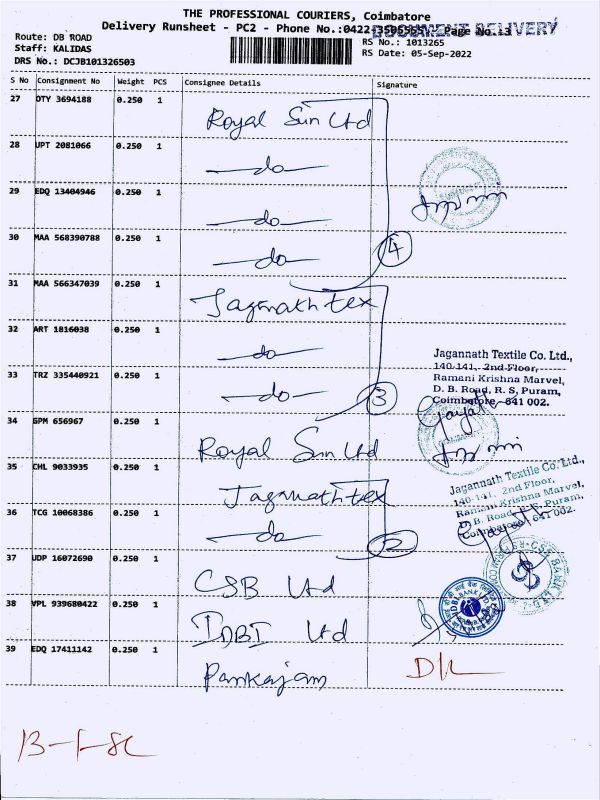 THE PROFESSIONAL COURIERS, Coimbatore
Delivery Runsheet - PC2 - Phone No.:0422-3505565 Page No.:3
DOCUMENT DELIVERY
Route: DB ROAD
RS No.: 1013265
Staff: KALIDAS
RS Date: 05-Sep-2022
DRS No.: DCJB101326503
S No Consignment No Weight PCS Consignee Details Signature
27 OTY 3694188 0.250 1 Royal Sun Ltd
28 UPT 2081066 0.250 1 do
29 EDQ 13404946 0.250 1 do
30 MAA 568390788 0.250 1 do 4
31 MAA 566347039 0.250 1 Jagannath tex
32 ART 1816038 0.250 1 do
Jagannath Textile Co. Ltd.,
140-141, 2nd Floor,
Ramani Krishna Marvel,
D. B. Road, R. S, Puram,
Coimbatore - 641 002.
33 TRZ 335440921 0.250 1 do 3
34 GPM 656967 0.250 1 Royal Sun Ltd
35 CHL 9033935 0.250 1 Jagannath tex
Jagannath Textile Co. Ltd.,
140-141, 2nd Floor,
Ramani Krishna Marvel,
D. B. Road, R.S. Puram,
Coimbatore - 641 002.
36 TCG 10068386 0.250 1 do 2
37 UDP 16072690 0.250 1 CSB Ltd
38 VPL 939680422 0.250 1 IDBI Ltd
39 EDQ 17411142 0.250 1 Pankajam